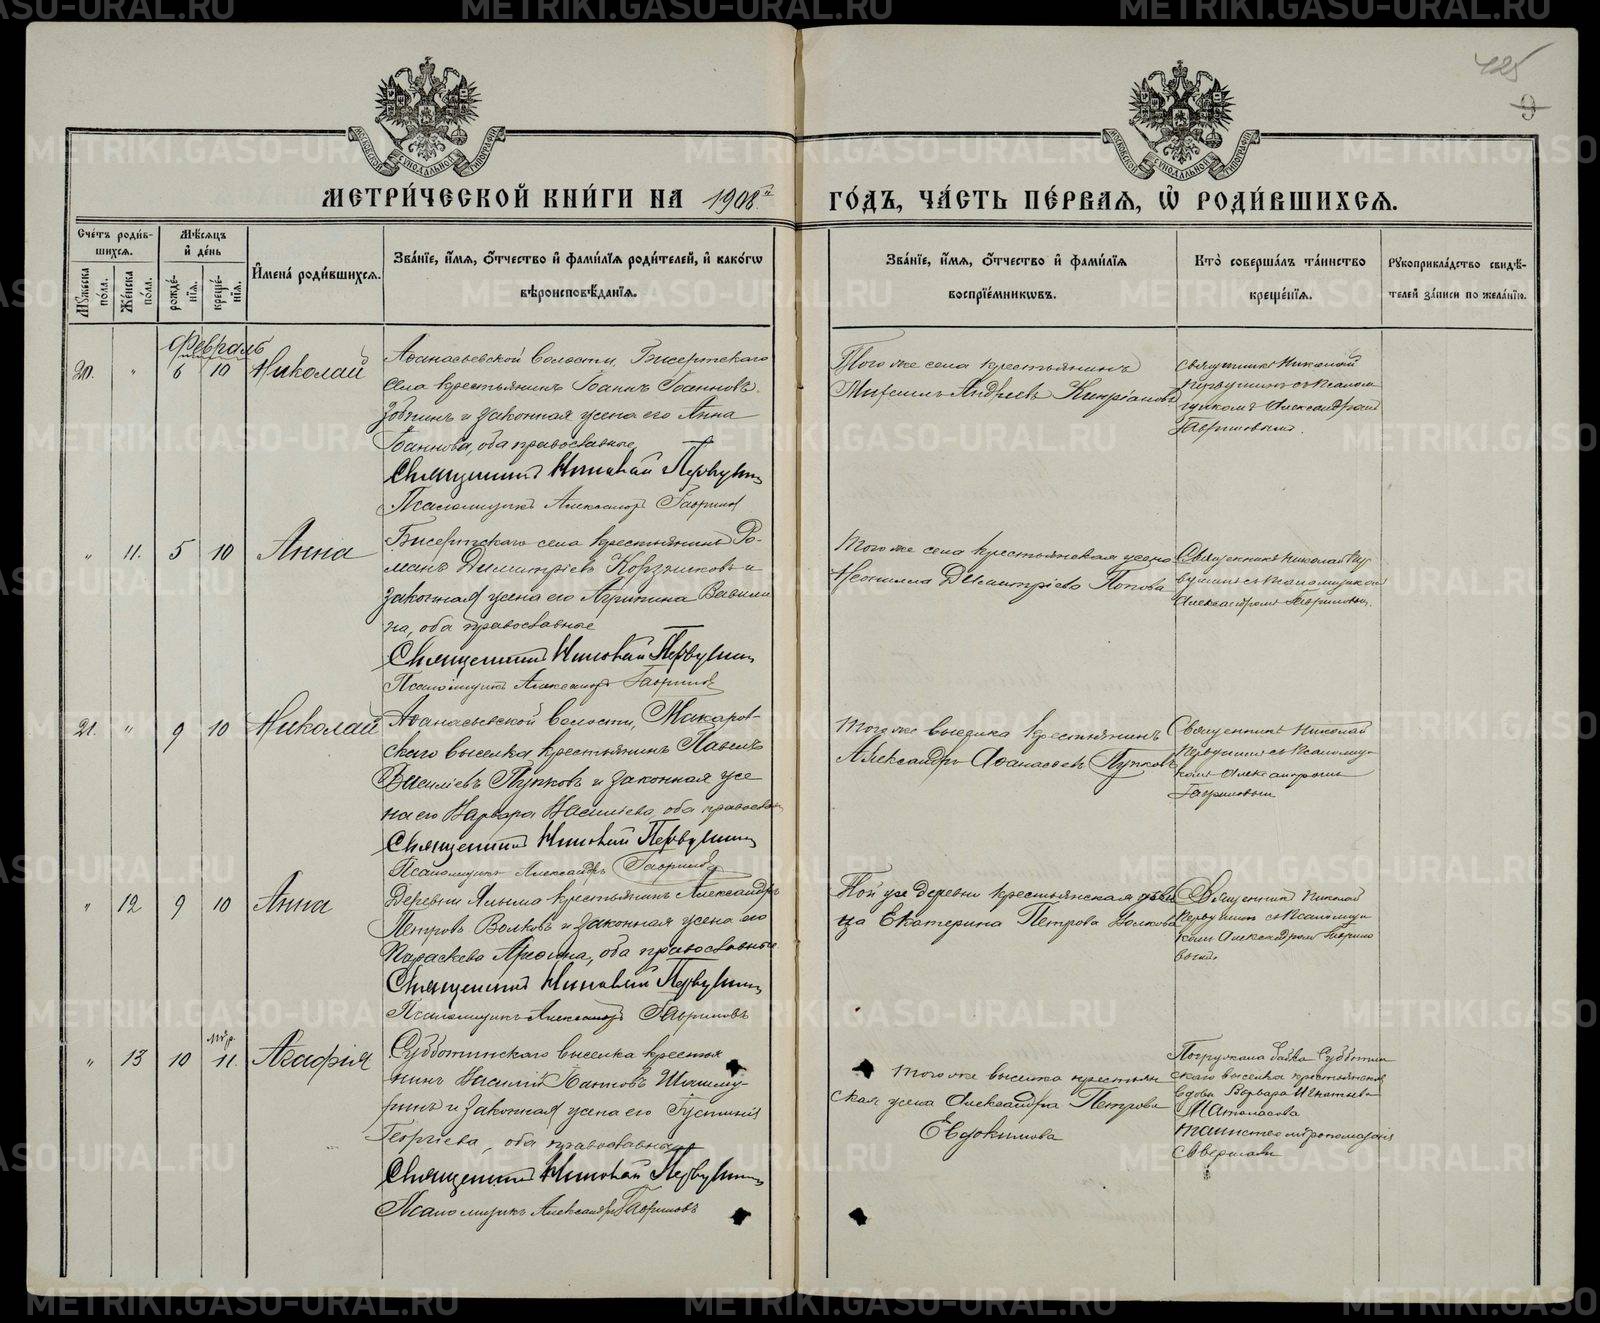 125
9
МЕТРИ́ЧЕСКОЙ КНИ́ГИ НА 1908й ГО́ДЪ, ЧА́СТЬ ПЕ́РВАЯ, Ѡ҆ РОДИ́ВШИХСЯ.
Сче́тъ роди́вшихся.
Мꙋ́жеска по́ла.
Же́нска по́ла.
Мѣ́сѧцъ и҆ де́нь
рожде́нїѧ.
креще́нїѧ.
И҆мена̀ роди́вшихсѧ.
Зва́нїе, и҆́мѧ, ѻ҆́тчество и҆ фами́лїѧ роди́телей, и҆ како́гѡ
вѣроисповѣ́данїѧ.
Зва́нїе, и҆́мѧ, ѻ҆́тчество и҆ фами́лїѧ
воспрїе́мникѡвъ.
Кто̀ соверша́лъ та́инство
креще́нїѧ.
Рꙋкоприкла́дство свидѣ́-
телей за́писи по жела́нїю.
Февраль
20. " 6 10 Николай
Аѳанасьевской волости, Бисертскаго
села крестьянинъ Іоаннъ Іоанновъ
Зобнинъ и законная жена его Анна
Іоаннова, оба православные
Священникъ Николай Первушинъ
Псаломщикъ Александръ Гавриловъ
Того же села крестьянинъ
Андреевъ Кипріановъ
Священникъ Николай
Первушинъ съ псалом
щикомъ Александромъ
Гавриловымъ.
" 11. 5 10 Анна
Бисертскаго села крестьянинъ Ро-
манъ Димитріевъ и
законная жена его Агрипина Вавили
на, оба православные
Священникъ Николай Первушинъ
Псаломщикъ Александръ Гавриловъ
Того же села крестьянская жена
Неонилла Димитріева Попова
Священникъ Николай Пер
вушинъ съ псаломщикомъ
Александромъ Гавриловымъ.
21. " 9 10 Николай
Аѳанасьевской волости, Макаров-
скаго выселка, крестьянинъ Павелъ
Васильевъ Пупковъ и законная же
на его Варвара Васильева, оба православн
Священникъ Николай Первушинъ
Псаломщикъ Александръ Гавриловъ
Того же выселка крестьянинъ
Александръ Аѳанасьевъ Пупковъ
Священникъ Николай
Первушинъ съ псаломщи
комъ Александромъ
Гавриловымъ
" 12 9 10 Анна
Деревни Алыма крестьянинъ Александръ
Петровъ Волковъ и законная жена его
Параскева Ареѳина, оба православные
Священникъ Николай Первушинъ
Псаломщикъ Александръ Гавриловъ
Той же деревни крестьянская дѣви
ца Екатерина Петрова Волкова
Священникъ Николай
Первушинъ съ псаломщи
комъ Александромъ Гаврило
вымъ.
" 13 10 11. Агафія
Субботинскаго выселка крестья
нинъ Василій
и законная жена его Іустинія
Георгіева, оба православные
Священникъ Николай Первушинъ
Псаломщикъ Александръ Гавриловъ
Того же выселка крестьян
ская жена Александра Петрова
Евдокимова
Погружала бабка Субботин
скаго выселка крестьянская
вдова Варвара Игнатьева
таинство
совершалъ
METRIKI.GASO-URAL.RU